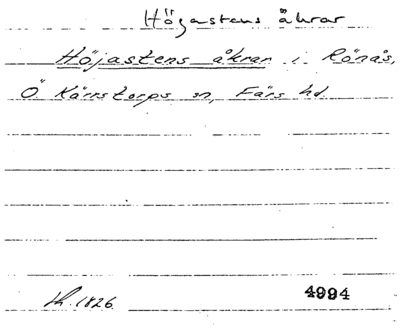 Högastens åkrar
Höjastens åkrar i Rönås,
Ö Kärrstorps sn, Färs hd.
lh. 1826. 4994